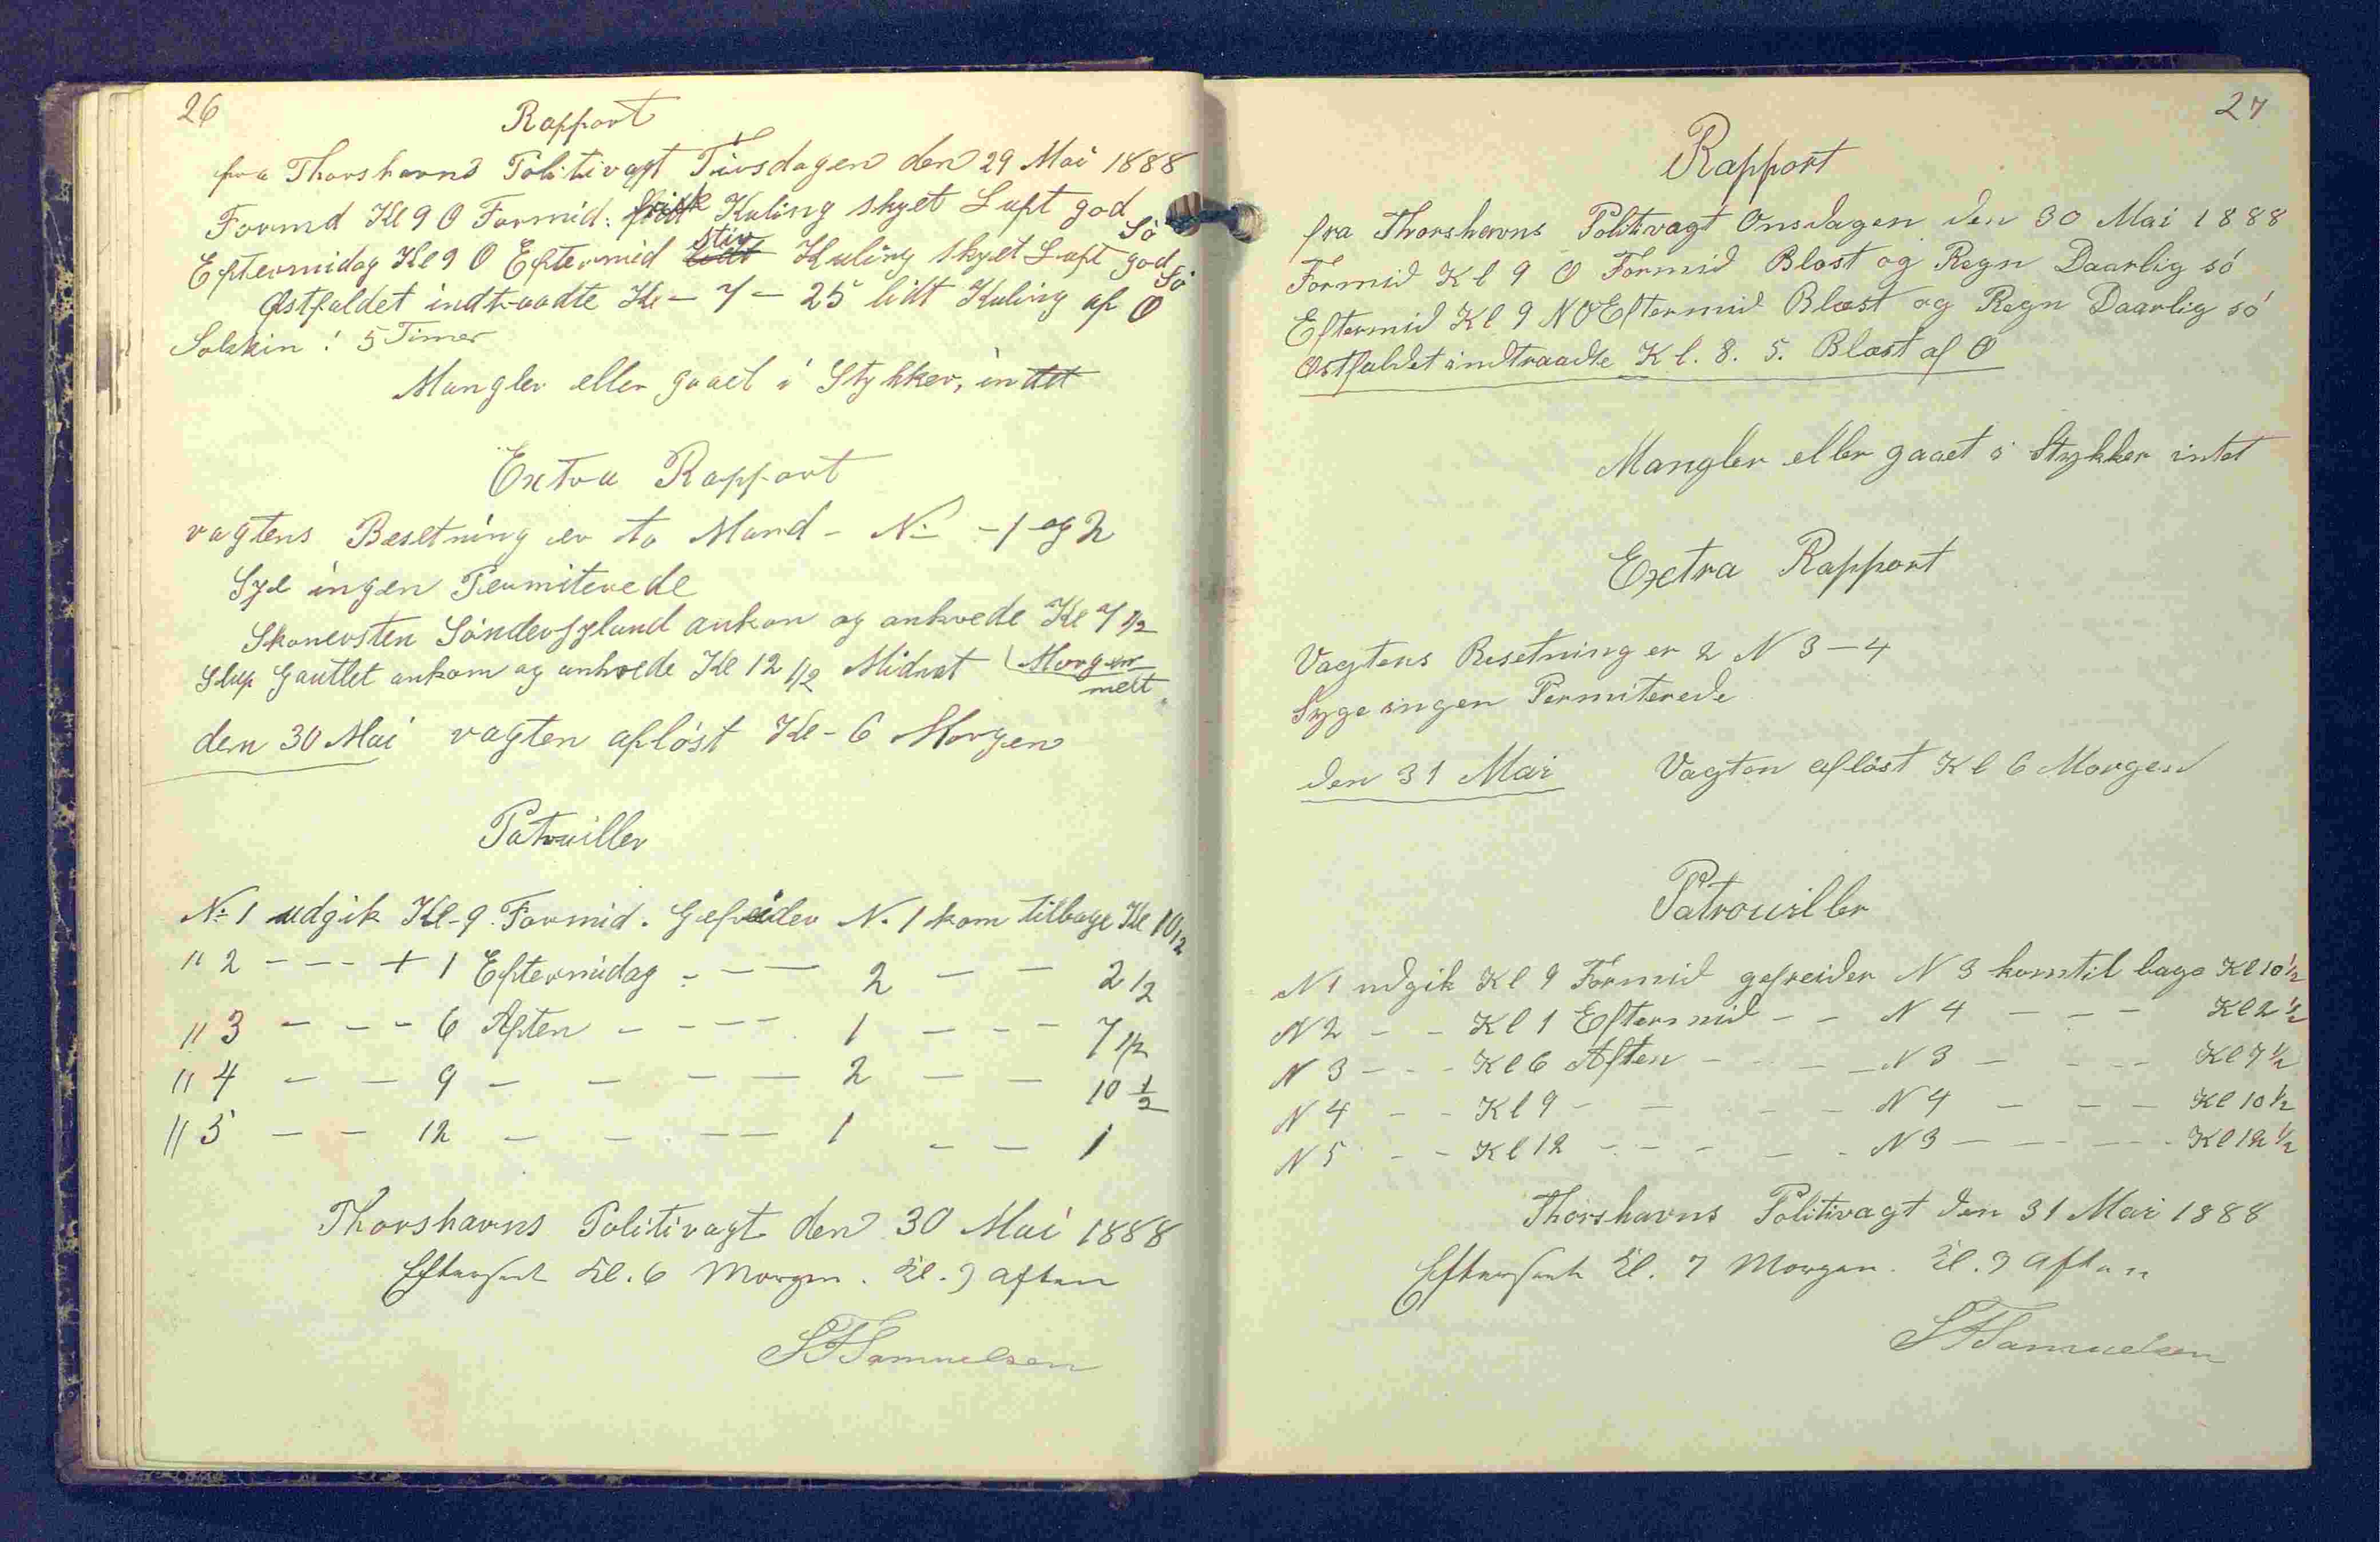 26
Rapport
fra Thorshavns Politivagt Tirsdagen den 29 Mai 1888
Formd Kl 9 O Formid: frisk Kuling skyet Luft god Sö
Eftermidag Kl 9 O Eftermid stiv Kuling skyet Luft god Sö
Østfaldet indtraadte Kl - 7 - 25 lidt Kuling af O
Solskin : 5 Timer
Mangler eller gaaet i Stykker, intet
Extra Rapport
vagtens Besetning er to Mand - No - 1 og 2
Sye ingen Permiterede
Skonersten Sönderjyland ankon og ankrede Kl 7 1/2
Slup Gautlet ankom og ankrede Kl 12 1/2 Midnat (Morgen melt
den 30 Mai vagten aflöst Kl - 6 Morgen
Patruiller
No 1 udgik Kl - 9. Formid. Gefreider N. 1 kom tilbage Kl 10 1/2
" 2 - - - + 1 Eftermidag - - - 2 - - 2 1/2
" 3 - - - 6 Aften - - - - 1 - - - 7 1/2
" 4 - - 9 - - - - 2 - - 10 1/2
" 5 - - 12 - - - - 1 - - 1
Thorshavns Politivagt den 30 Mai 1888
Efterseet Kl. 6 Morgen. Kl. 9 Aften
S F Samuelsen
27
Rapport
fra Thorshavns Politivagt Onsdagen den 30 Mai 1888
Formid Kl 9 O Formid Blæst og Regn Daarlig sö
Eftermid Kl 9 NO Eftermid Blæst og Regn Daarlig sö
Østfaldet indtraadte Kl. 8. 5. Blæst af O
Mangler eller gaaet i Stykker intet
Exctra Rapport
Vagtens Besetning er 2 N 3 - 4
Syge ingen Permiterede
den 31 Mai Vagten aflöst Kl 6 Morgen
Patrouiller
N 1 udgik Kl 9 Formid gefreider N 3 kom til bage Kl 10 1/2
N 2 - - Kl 1 Eftermid - - N 4 - - - Kl 2 1/2
N 3 - - - Kl 6 Aften - - - N 3 - - - Kl 7 1/2
N 4 - - Kl 9 - - - - N 4 - - - Kl 10 1/2
N 5 - - Kl 12 - - - - - N 3 - - - - Kl 12 1/2
Thorshavns Politivagt den 31 Mai 1888
Efterseet Kl. 7 Morgen. Kl. 9 Aften
S F Samuelsen